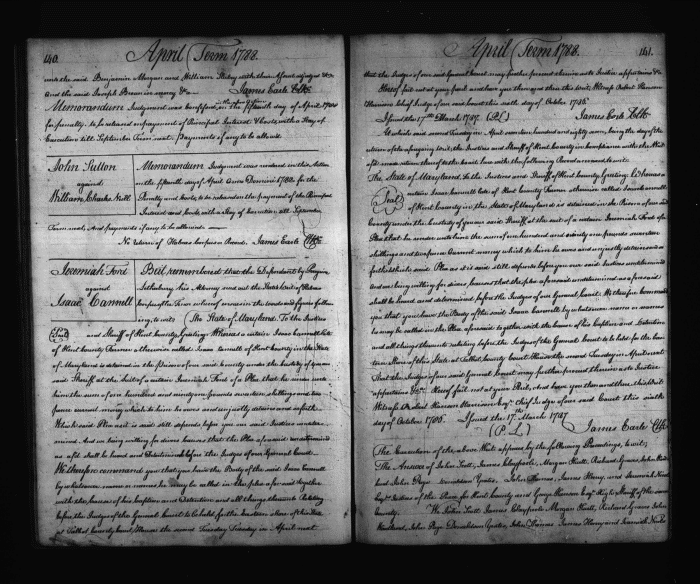 140. April Term 1788.
and the said Benjamin Morgan and William Stiley with their
And the said Joseph Brown in mercy &c. James Earle Clk
Memorandum Judgment was confessed in the fifteenth day of April 1788
for penalty to be released on payment of Principal Interest & Costs with a Stay of
Execution till September Term next. Payments if any to be allowed
John Sutton
against
William Charles Neill
Memorandum Judgment was rendered in this Action
on the fifteenth day of April Anno Domini 1788 for the
Penalty and Costs, to be released on the payment of the Principal
Interest and Costs with a Stay of Execution till September
Term next, And payments if any to be allowed
No return of Habeas Corpus on Record. James Earle Clk
Jeremiah Ford
against
Isaac Cannell
Be it remembered that the Defendant by
his Attorney sued out the State's writ of Habeas
Corpus of the Tenor
to wit; The State of Maryland To the Justices
Seal and Sheriff of Kent County Greeting Whereas a certain Isaac Cannell late
of Kent County Farmer otherwise called Isaac Cannell of Kent County in the State
of Maryland is detained in the Prison of our said County under the Custody of you our
said Sheriff at the Suit of a certain Jeremiah Ford of a Plea that he render unto
him the sum of one hundred and ninety one pounds seventeen shillings and two
pence current money which to him he owes and unjustly detains and as
Which said Plea as it is said still depends before you our said Justices undeter-
mined And we being willing for divers causes that the Plea aforesaid be determined
as aforesaid shall be heard and Determined before the Judges of our General Court.
We therefore command you that you have the Body of the said Isaac Cannell
by whatsoever name or names he may be called in the plea aforesaid together
with the causes of his Caption and Detention and all things therewith Relating
before the Judges of the General Court to be held for the Eastern Shore of this State
at Talbot County Court House the second Tuesday in April next
April Term 1788. 141.
that the Judges of our said General Court may further proceed therein as to Justice appertains &c
Hereof fail not at your peril and have you then and there this writ Witness Robert Hanson
Harrison Chief Judge of our said Court this sixth day of October 1786.
Issued the 17th March 1787. (P. L.) James Earle Clk
At which said second Tuesday in April seventeen hundred and eighty seven, being the day of the
return of the foregoing writ, the Justices and Sheriff of Kent County in compliance with the Writ
afd. made return thereof to the Court here with the following Record annexed to wit.
The State of Maryland, To the Justices and Sheriff of Kent County Greeting Whereas a
Seal certain Isaac Cannell late of Kent County Farmer otherwise called Isaac Cannell
of Kent County in the State of Maryland is detained in the Prison of our said
County under the custody of you our said Sheriff at the suit of a certain Jeremiah Ford of a
Plea that he render unto him the sum of one hundred and ninety one pounds seventeen
shillings and two pence Current money which to him he owes and unjustly detains and as
forth
shall be heard and determined before the Judges of our General Court. We therefore command
you that you have the Body of the said Isaac Cannell by whatsoever name or names
he may be called in the Plea aforesaid together with the causes of his Caption and Detention
and all things therewith relating before the Judges of the General Court to be held for the Eastern
Shore of this State at Talbot County Court House the second Tuesday in April next
That the Judges of our said General Court may further proceed therein as to Justice
appertains &c. Hereof fail not at your Peril, And have you then and there this Writ
Witness Robert Hanson Harrison Esqr. Chief Judge of our said Court this sixth
day of October 1786. Issued the 17th March 1787
(P. L.) James Earle Clk
The Execution of the above Writ appears by the following Panel to wit;
The Answer of John Scott, James Claypoole, Morgan Hurtt, Richard Graves, John
John Page Donaldson Yeates, John Thomas, James Henry, and Jeremiah Nicols
Esqr. Justices of the Peace for Kent County and George Hanson Esqr. High Sheriff of the same
County. We John Scott James Claypoole Morgan Hurtt, Richard Graves John
John Page Donaldson Yeates, John Thomas James Henry and Jeremiah Nicols